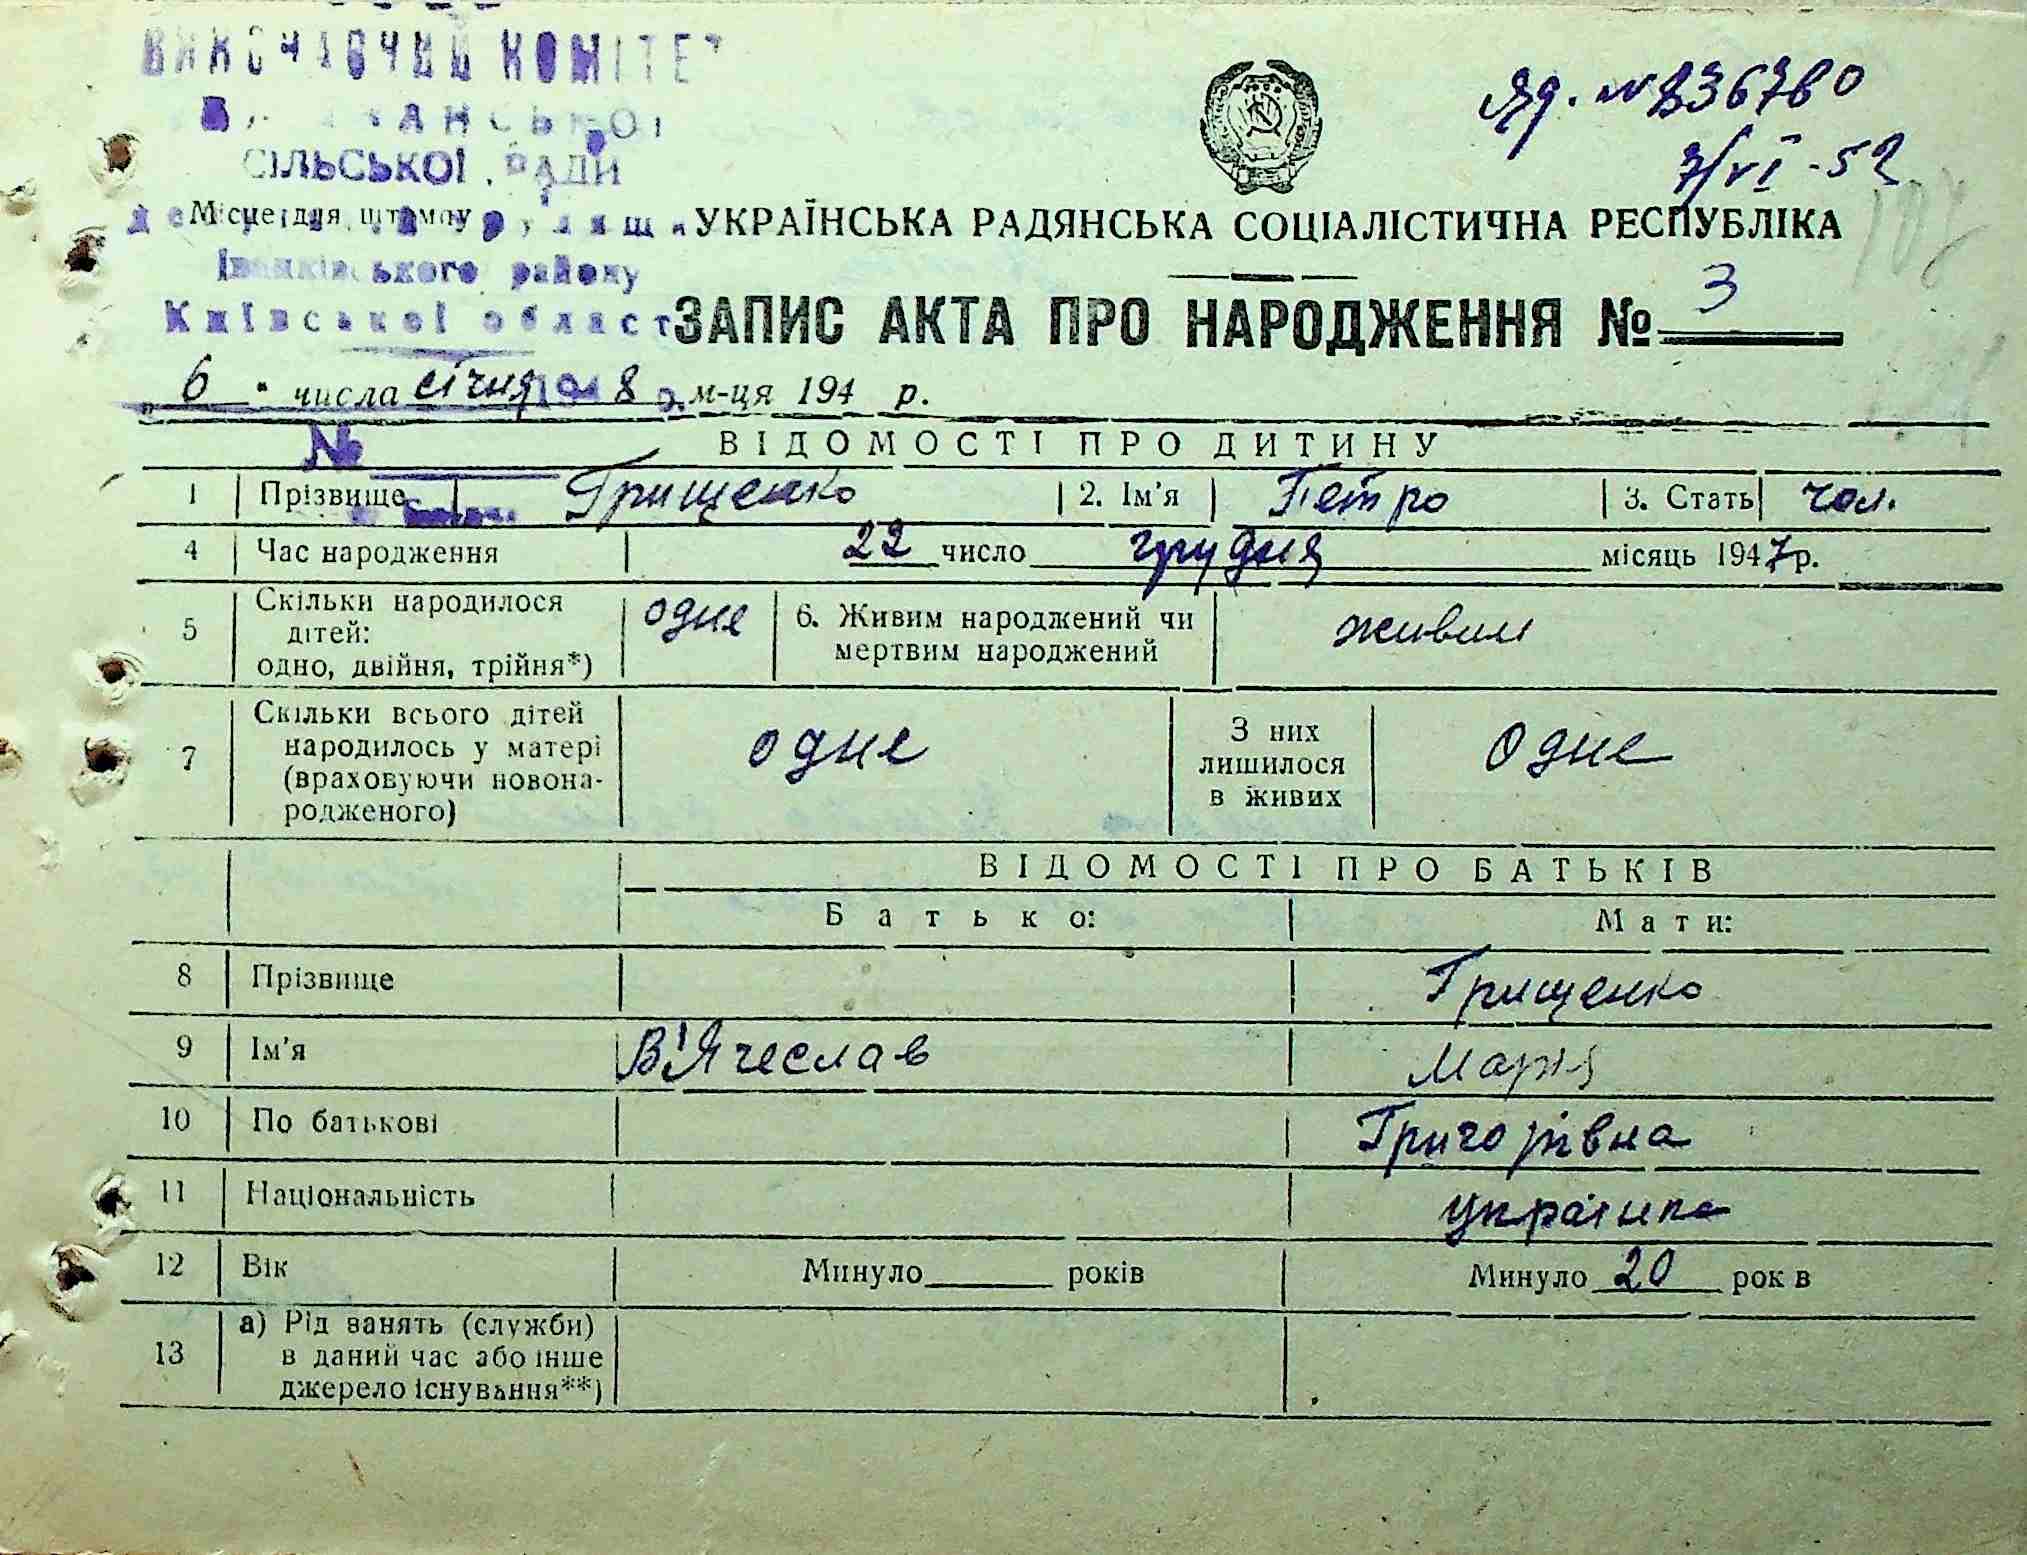 ВИКОНАВЧИЙ КОМІТЕТ
СІЛЬСЬКОЇ РАДИ
Місце для штампу
Іванківського району
Київської област
№ 236760
7/VI - 52
УКРАЇНСЬКА РАДЯНСЬКА СОЦІАЛІСТИЧНА РЕСПУБЛІКА
ЗАПИС АКТА ПРО НАРОДЖЕННЯ № 3
„ 6 " числа січня 1948 р. м-ця 194 р.
№
ВІДОМОСТІ ПРО ДИТИНУ
1 Прізвище Грищенко 2. Ім'я Петро 3. Стать чол.
4 Час народження 22 число грудня місяць 1947 р.
5 Скільки народилося дітей: одно, двійня, трійня*) одне 6. Живим народжений чи мертвим народжений живим
7 Скільки всього дітей народилось у матері (враховуючи новонародженого) одне З них лишилося в живих одне
ВІДОМОСТІ ПРО БАТЬКІВ
Батько: Мати:
8 Прізвище Грищенко
9 Ім'я В'Ячеслав Марія
10 По батькові Григорівна
11 Національність українка
12 Вік Минуло років Минуло 20 рок в
13 а) Рід занять (служби) в даний час або інше джерело існування**)